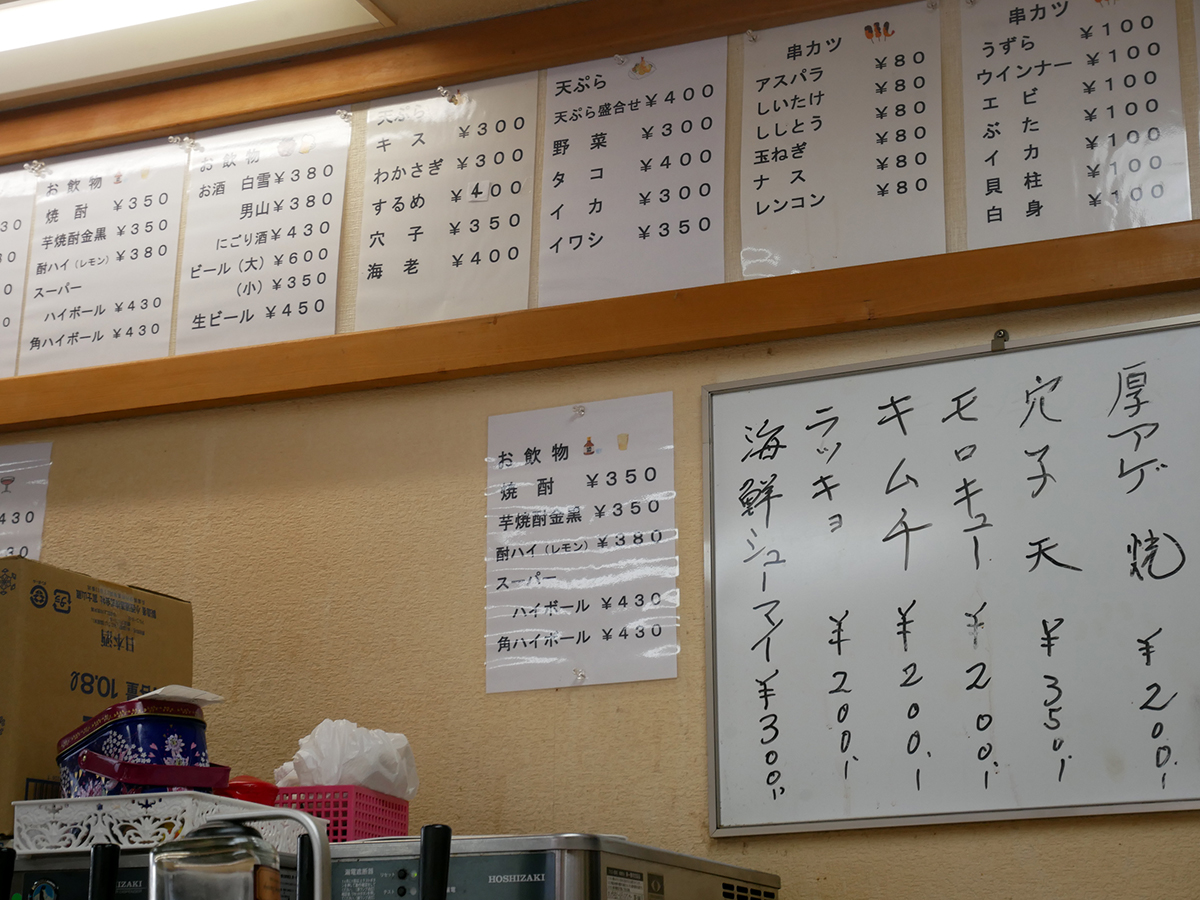 お飲物
焼酎 ¥350
芋焼酎金黒 ¥350
酎ハイ(レモン) ¥380
スーパー
ハイボール ¥430
角ハイボール ¥430
お飲物
お酒 白雪 ¥380
男山 ¥380
にごり酒 ¥430
ビール(大) ¥600
(小) ¥350
生ビール ¥450
天ぷら
キス ¥300
わかさぎ ¥300
するめ ¥400
穴子 ¥350
海老 ¥400
天ぷら
天ぷら盛合せ ¥400
野菜 ¥300
タコ ¥400
イカ ¥300
イワシ ¥350
串カツ
アスパラ ¥80
しいたけ ¥80
ししとう ¥80
玉ねぎ ¥80
ナス ¥80
レンコン ¥80
串カツ
うずら ¥100
ウインナー ¥100
エビ ¥100
ぶた ¥100
イカ ¥100
貝柱 ¥100
白身 ¥100
430
お飲物
焼酎 ¥350
芋焼酎金黒 ¥350
酎ハイ(レモン) ¥380
スーパー
ハイボール ¥430
角ハイボール ¥430
厚アゲ焼 ¥200.-
穴子天 ¥350.-
モロキュー ¥200.-
キムチ ¥200.-
ラッキョ ¥200.-
海鮮シューマイ ¥300.-
日本酒
容量 10.8ℓ
HOSHIZAKI
漏電遮断器
HOSHIZAKI